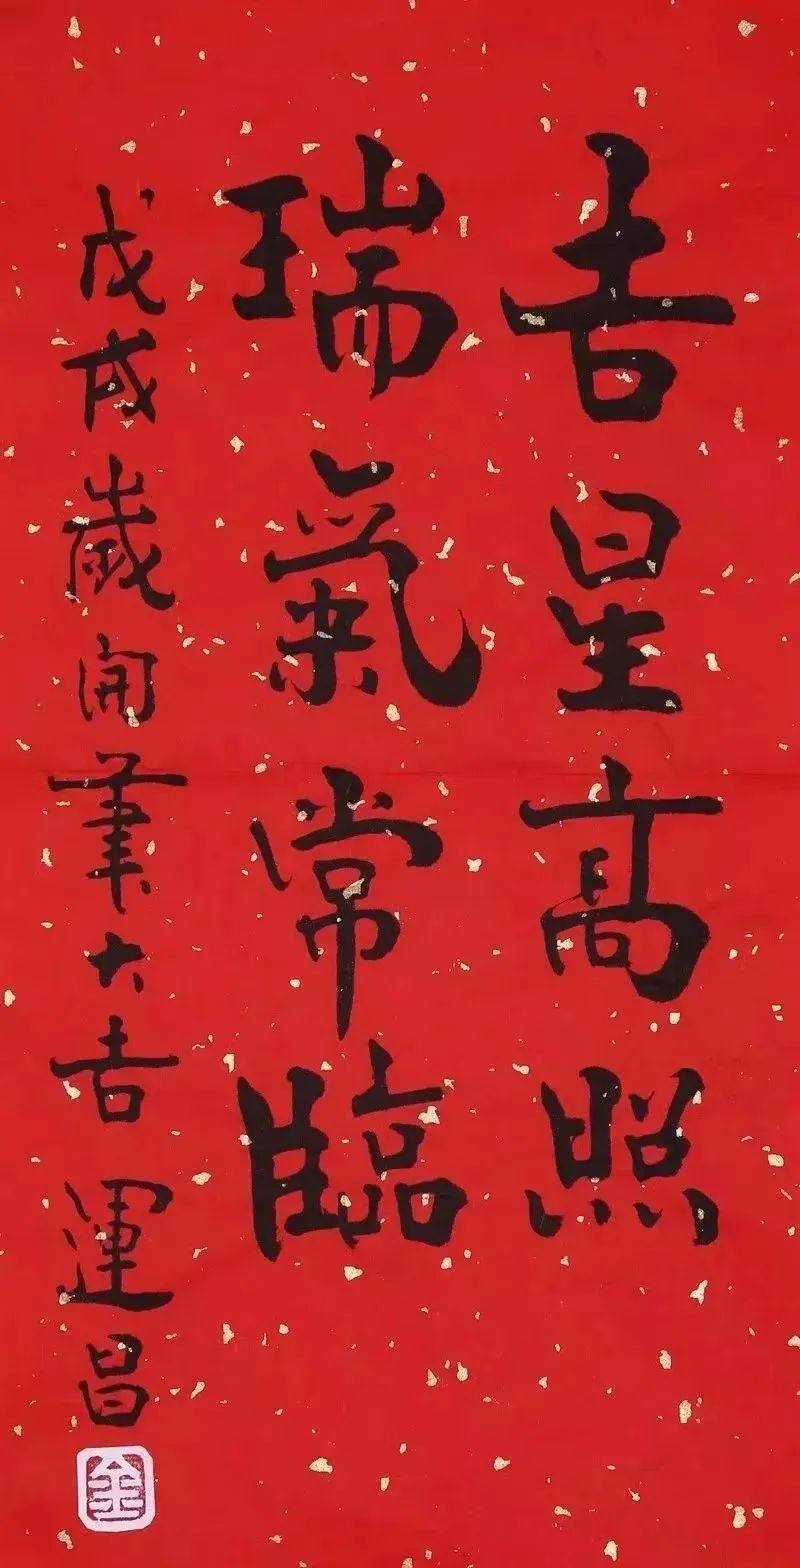 吉星高照
瑞氣常臨
戊戌歲開筆大吉 運昌
金